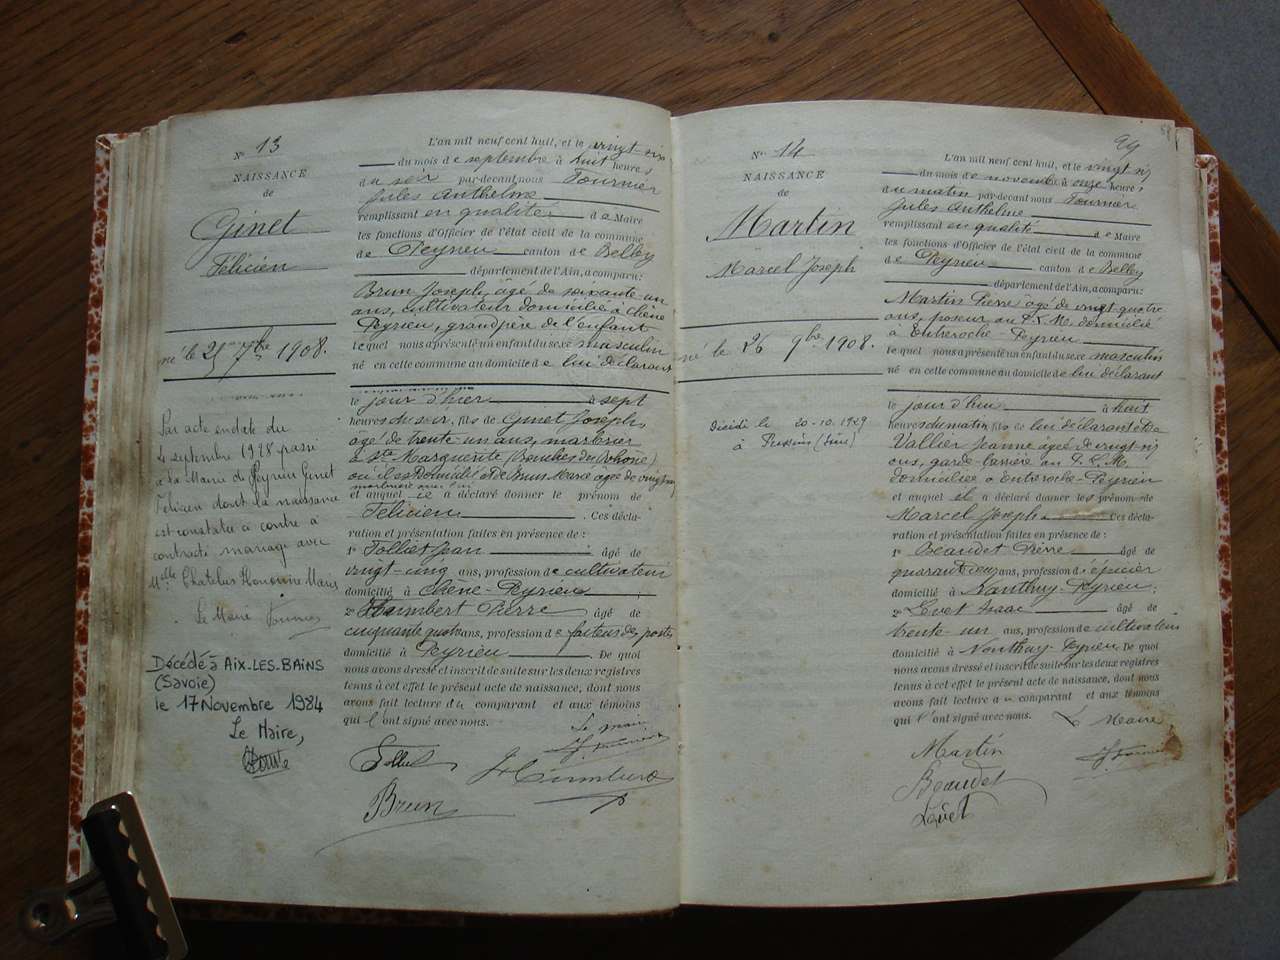 N° 13
NAISSANCE
de
Ginet
Félicien
né le 25 7bre 1908.
Par acte en date du
4 septembre 1928 passé
à la Mairie de Peyrieu Ginet
Félicien dont la naissance
est constatée ci contre a
contracté mariage avec
Melle Chatelus Honorine Marie
Le Maire Fournier
Décédé à AIX-LES-BAINS
(Savoie)
le 17 Novembre 1984
Le Maire,
L'an mil neuf cent huit, et le vingt six
du mois de septembre à huit heures
du soir par-devant nous Fournier
Jules Anthelme
remplissant en qualité de Maire
les fonctions d'Officier de l'état civil de la commune
de Peyrieu canton de Belley
département de l'Ain, a comparu:
Brun Joseph, âgé de soixante un
ans, cultivateur domicilié à Chêne
Peyrieu, grand père de l'enfant
lequel nous a présenté un enfant du sexe masculin
né en cette commune au domicile de lui déclarant
le jour d'hier à sept
heures du soir, fils de Ginet Joseph,
âgé de trente un ans, marbrier
à Ste Marguerite (Bouches du Rhône)
où il est domicilié et de Brun Marie âgée de vingt
et auquel il a déclaré donner le prénom de
Félicien . Ces décla-
ration et présentation faites en présence de :
1° Tolliet Jean âgé de
vingt-cinq ans, profession de cultivateur
domicilié à Chêne-Peyrieu ;
2° Humbert Pierre âgé de
cinquante quatre ans, profession de facteur des postes
domicilié à Peyrieu . De quoi
nous avons dressé et inscrit de suite sur les deux registres
tenus à cet effet le présent acte de naissance, dont nous
avons fait lecture au comparant et aux témoins
qui l'ont signé avec nous.
Le maire
J. Fournier
Tolliet
Humbert
Brun
99
N° 14
NAISSANCE
de
Martin
Marcel Joseph
né le 26 9bre 1908.
Décédé le 20-10-1929
à
L'an mil neuf cent huit, et le vingt six
du mois de novembre à onze heures
du matin par-devant nous Fournier
Jules Anthelme
remplissant en qualité de Maire
les fonctions d'Officier de l'état civil de la commune
de Peyrieu canton de Belley
département de l'Ain, a comparu:
Martin Pierre âgé de vingt quatre
ans, poseur au P. L. M. domicilié
à Entreroche Peyrieu
lequel nous a présenté un enfant du sexe masculin
né en cette commune au domicile de lui déclarant
le jour d'hui à huit
heures du matin, fils de lui déclarant et de
Vallier Jeanne âgée de vingt six
ans, garde-barrière au P. L. M.
domiciliée à Entreroche-Peyrieu
et auquel il a déclaré donner les prénoms de
Marcel Joseph . Ces décla-
ration et présentation faites en présence de :
1° Beaudet Pierre âgé de
quarante deux ans, profession d'épicier
domicilié à Nanthuy-Peyrieu ;
2° Evet Isaac âgé de
trente-un ans, profession de cultivateur
domicilié à Nanthuy-Peyrieu . De quoi
nous avons dressé et inscrit de suite sur les deux registres
tenus à cet effet le présent acte de naissance, dont nous
avons fait lecture au comparant et aux témoins
qui l'ont signé avec nous.
Le Maire
J. Fournier
Martin
Beaudet
Evet